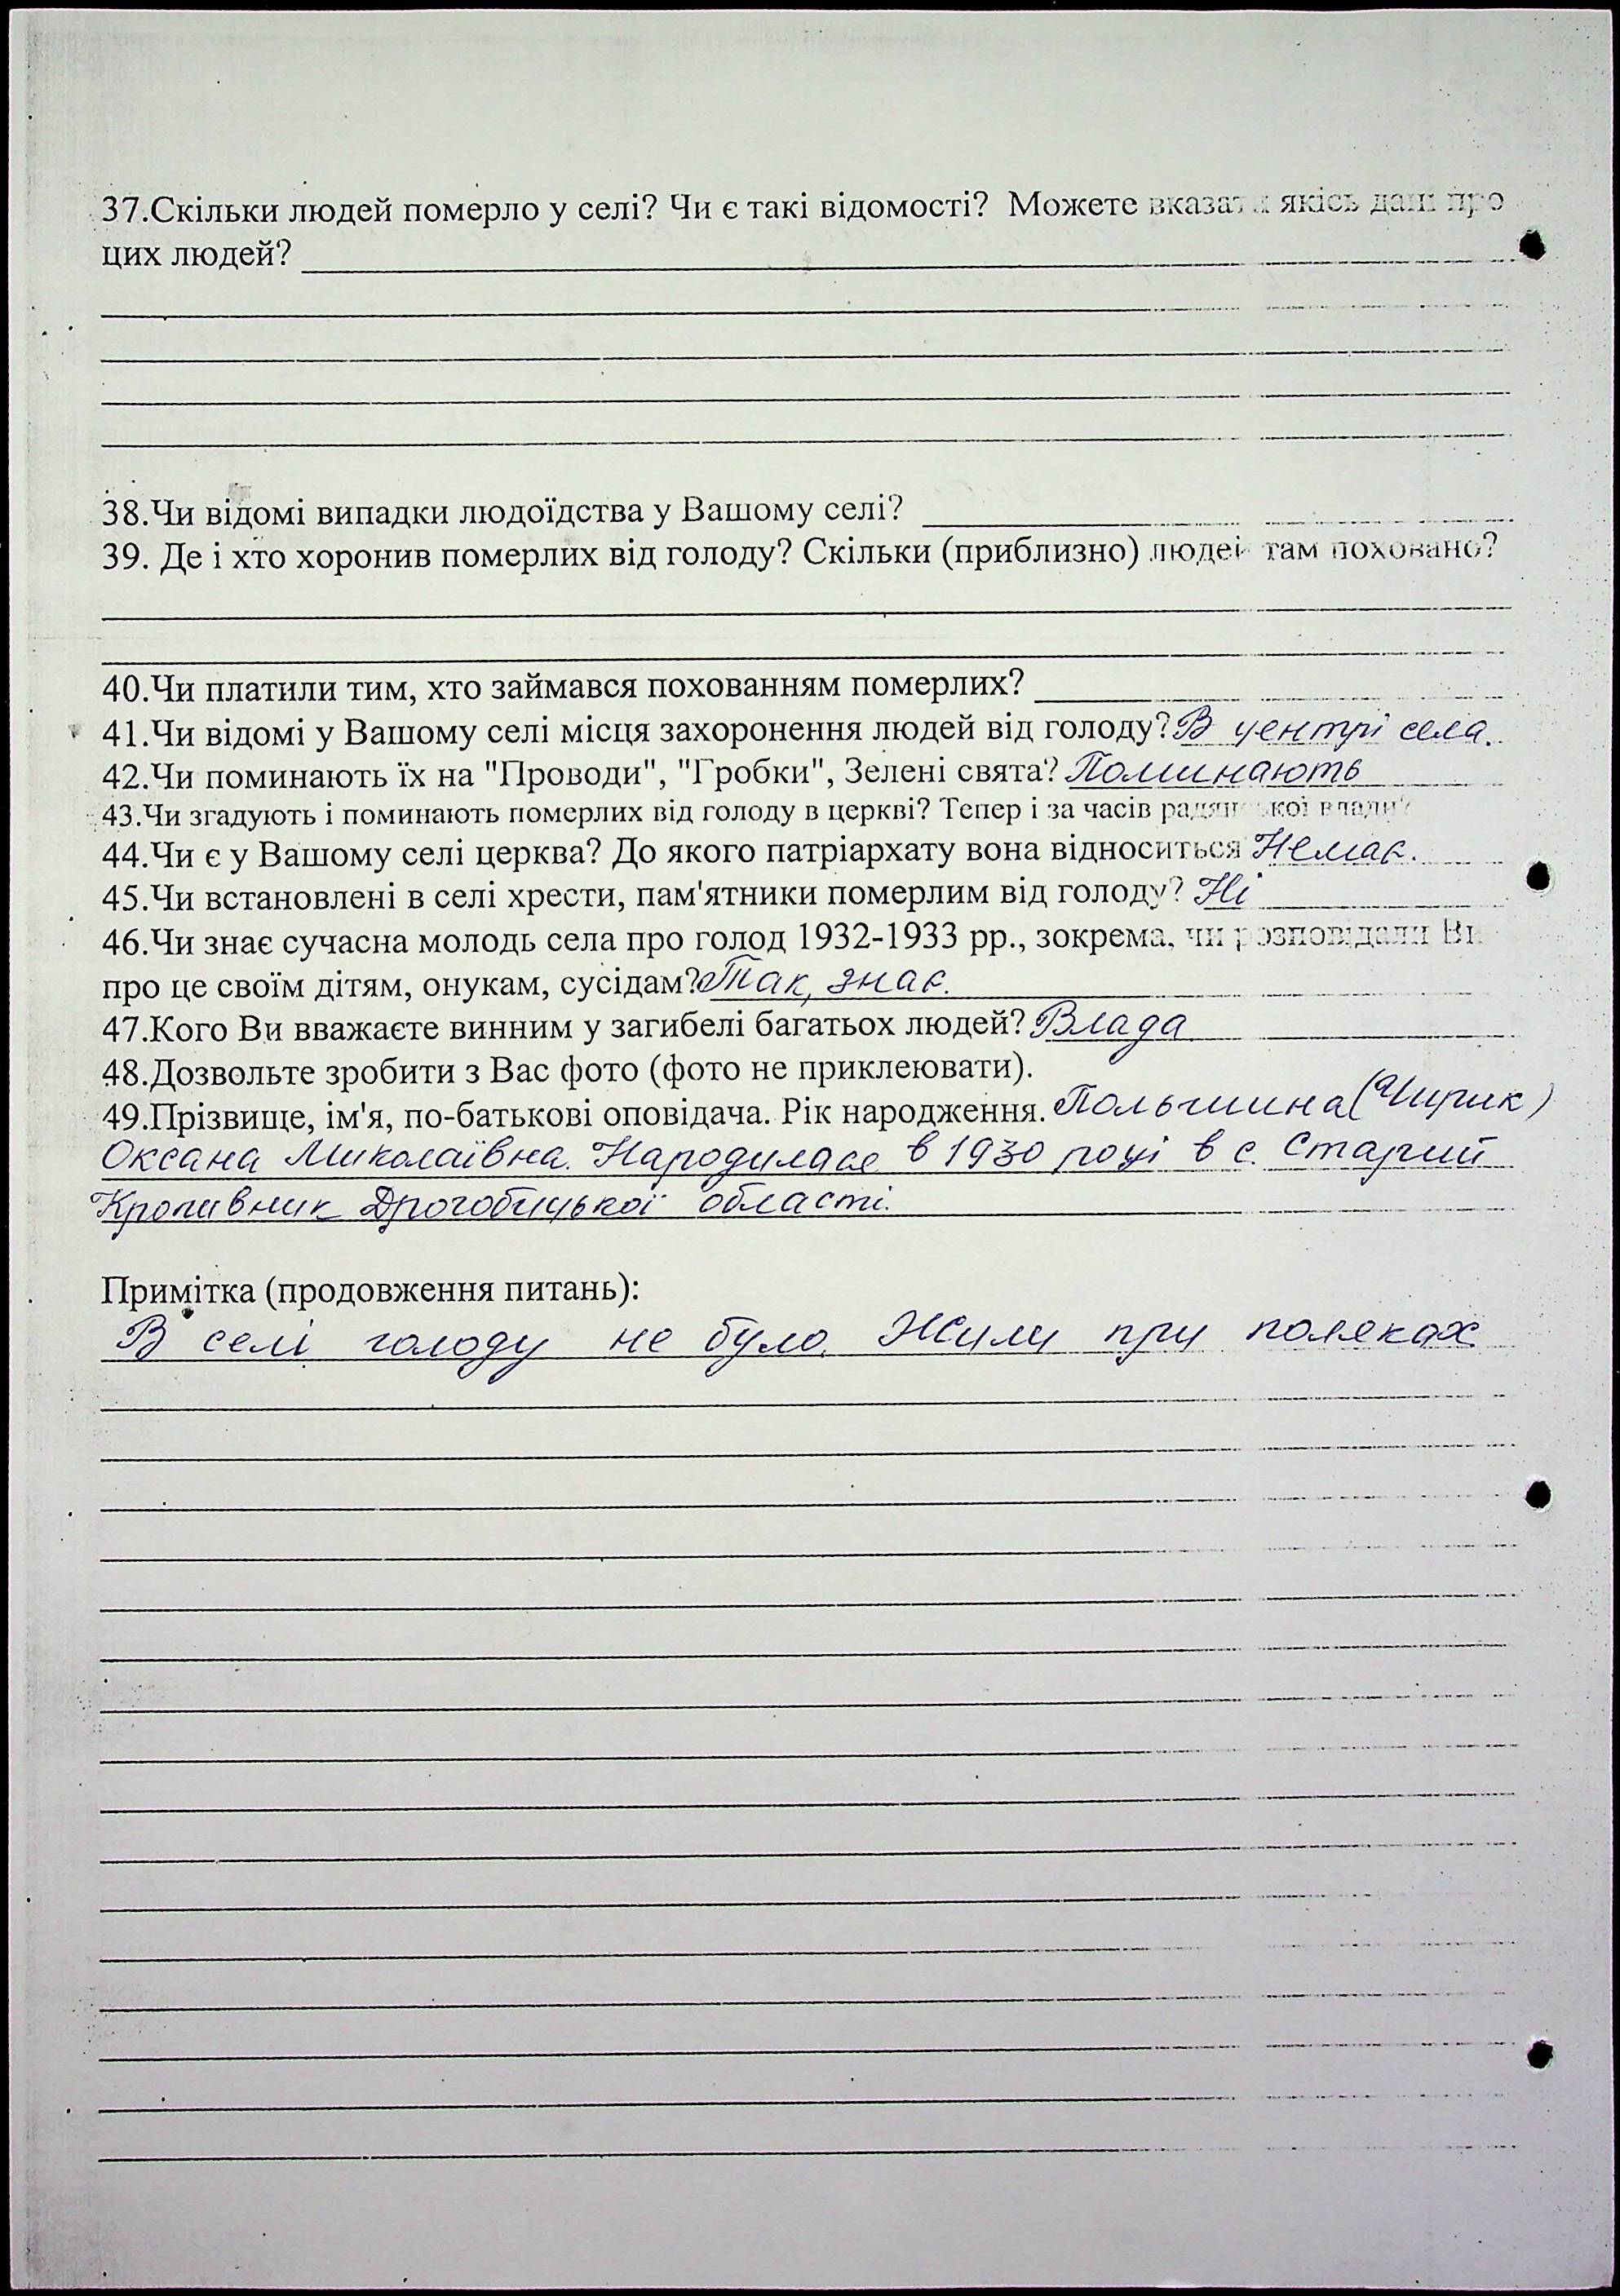 37.Скільки людей померло у селі? Чи є такі відомості? Можете вказати якісь дані про
цих людей?
38.Чи відомі випадки людоїдства у Вашому селі?
39. Де і хто хоронив померлих від голоду? Скільки (приблизно) людей там поховано?
40.Чи платили тим, хто займався похованням померлих?
41.Чи відомі у Вашому селі місця захоронення людей від голоду? В центрі села.
42.Чи поминають їх на "Проводи", "Гробки", Зелені свята? Поминають
43.Чи згадують і поминають померлих від голоду в церкві? Тепер і за часів радянської влади?
44.Чи є у Вашому селі церква? До якого патріархату вона відноситься Немає.
45.Чи встановлені в селі хрести, пам'ятники померлим від голоду? Ні
46.Чи знає сучасна молодь села про голод 1932-1933 рр., зокрема, чи розповідали Ви
про це своїм дітям, онукам, сусідам? Так, знає.
47.Кого Ви вважаєте винним у загибелі багатьох людей? Влада
48.Дозвольте зробити з Вас фото (фото не приклеювати).
49.Прізвище, ім'я, по-батькові оповідача. Рік народження. Польшина (Чирик)
Оксана Миколаївна. Народилася в 1930 році в с. Старий
Кропивник Дрогобицької області.
Примітка (продовження питань):
В селі голоду не було. Жили при поляках